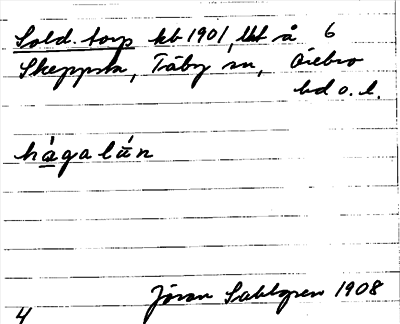 Sold. torp kb 1901, utt å 6
Skeppsta, Täby sn, Örebro
hd o. l.
hågalún
Jöran Sahlgren 1908
4